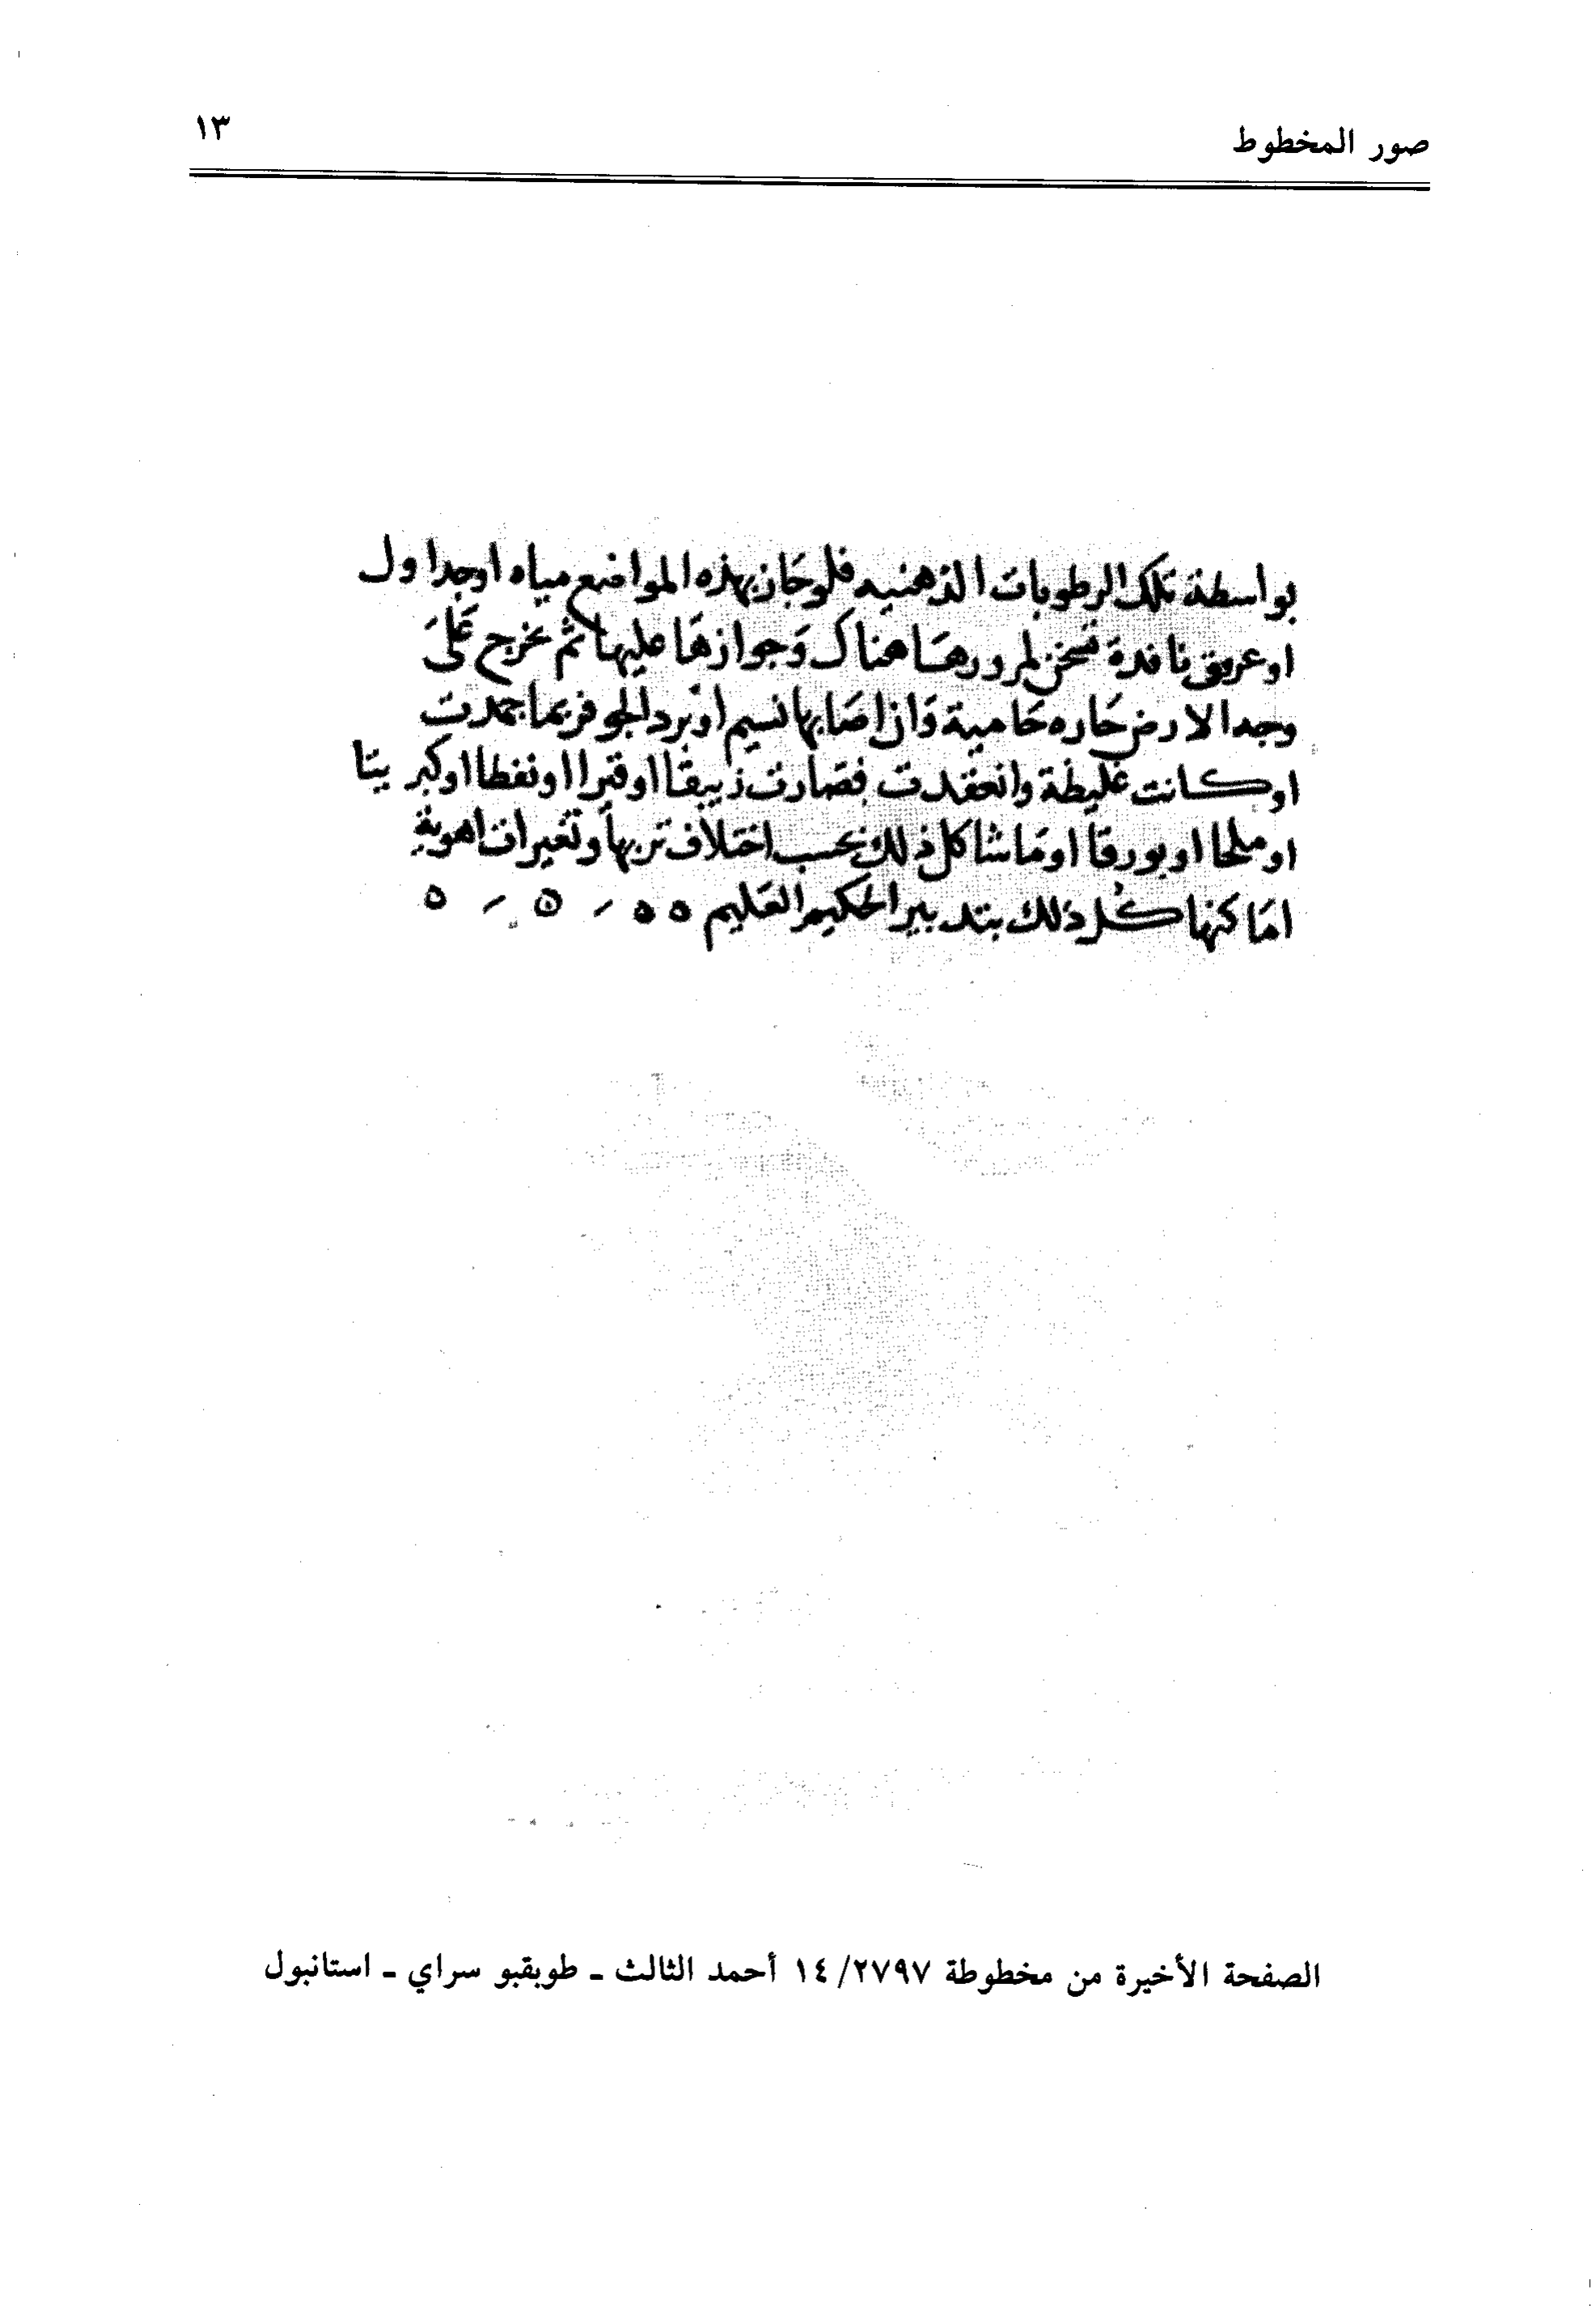 صور المخطوط
١٣
بواسطة تلك الرطوبات الذهنيه فلو جاز بهذه المواضع مياه او جداول
او عروق نافدة تسخن لمرورها هناك وجوازها عليها ثم يخرج على
وجه الارض حاره حامية وان اصابها نسيم او برد الجو فربما جمدت
او كانت غليظة وانعقدت فصارت زيبقا او قيرا او نفطا او كبريتا
او ملحا او بورقا او ما شاكل ذلك بحسب اختلاف تربها وتغيرات اهوية
اماكنها كل ذلك بتدبير الحكيم العليم ٥ ٥ - ٥ - ٥
الصفحة الأخيرة من مخطوطة ٢٧٩٧/ ١٤ أحمد الثالث ـ طوبقبو سراي ـ استانبول